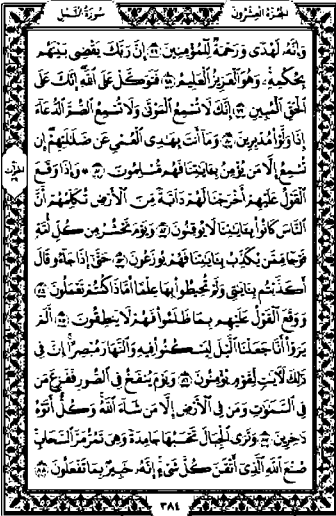 الجزء العشرون
سورة النمل
وَإِنَّهُ لَهُدًى وَرَحْمَةٌ لِّلْمُؤْمِنِينَ ۝٧٧ إِنَّ رَبَّكَ يَقْضِي بَيْنَهُم
بِحُكْمِهِ وَهُوَ الْعَزِيزُ الْعَلِيمُ ۝٧٨ فَتَوَكَّلْ عَلَى اللَّهِ إِنَّكَ عَلَى
الْحَقِّ الْمُبِينِ ۝٧٩ إِنَّكَ لَا تُسْمِعُ الْمَوْتَى وَلَا تُسْمِعُ الصُّمَّ الدُّعَاءَ
إِذَا وَلَّوْا مُدْبِرِينَ ۝٨٠ وَمَا أَنتَ بِهَادِي الْعُمْيِ عَن ضَلَالَتِهِمْ إِن
تُسْمِعُ إِلَّا مَن يُؤْمِنُ بِآيَاتِنَا فَهُم مُّسْلِمُونَ ۝٨١ وَإِذَا وَقَعَ
الْقَوْلُ عَلَيْهِمْ أَخْرَجْنَا لَهُمْ دَابَّةً مِّنَ الْأَرْضِ تُكَلِّمُهُمْ أَنَّ
النَّاسَ كَانُوا بِآيَاتِنَا لَا يُوقِنُونَ ۝٨٢ وَيَوْمَ نَحْشُرُ مِن كُلِّ أُمَّةٍ
فَوْجًا مِّمَّن يُكَذِّبُ بِآيَاتِنَا فَهُمْ يُوزَعُونَ ۝٨٣ حَتَّى إِذَا جَاءُو قَالَ
أَكَذَّبْتُم بِآيَاتِي وَلَمْ تُحِيطُوا بِهَا عِلْمًا أَمَّاذَا كُنتُمْ تَعْمَلُونَ ۝٨٤
وَوَقَعَ الْقَوْلُ عَلَيْهِم بِمَا ظَلَمُوا فَهُمْ لَا يَنطِقُونَ ۝٨٥ أَلَمْ
يَرَوْا أَنَّا جَعَلْنَا اللَّيْلَ لِيَسْكُنُوا فِيهِ وَالنَّهَارَ مُبْصِرًا إِنَّ فِي
ذَلِكَ لَآيَاتٍ لِّقَوْمٍ يُؤْمِنُونَ ۝٨٦ وَيَوْمَ يُنفَخُ فِي الصُّورِ فَفَزِعَ مَن
فِي السَّمَاوَاتِ وَمَن فِي الْأَرْضِ إِلَّا مَن شَاءَ اللَّهُ وَكُلٌّ أَتَوْهُ
دَاخِرِينَ ۝٨٧ وَتَرَى الْجِبَالَ تَحْسَبُهَا جَامِدَةً وَهِيَ تَمُرُّ مَرَّ السَّحَابِ
صُنْعَ اللَّهِ الَّذِي أَتْقَنَ كُلَّ شَيْءٍ إِنَّهُ خَبِيرٌ بِمَا تَفْعَلُونَ ۝٨٨
٣٨٤